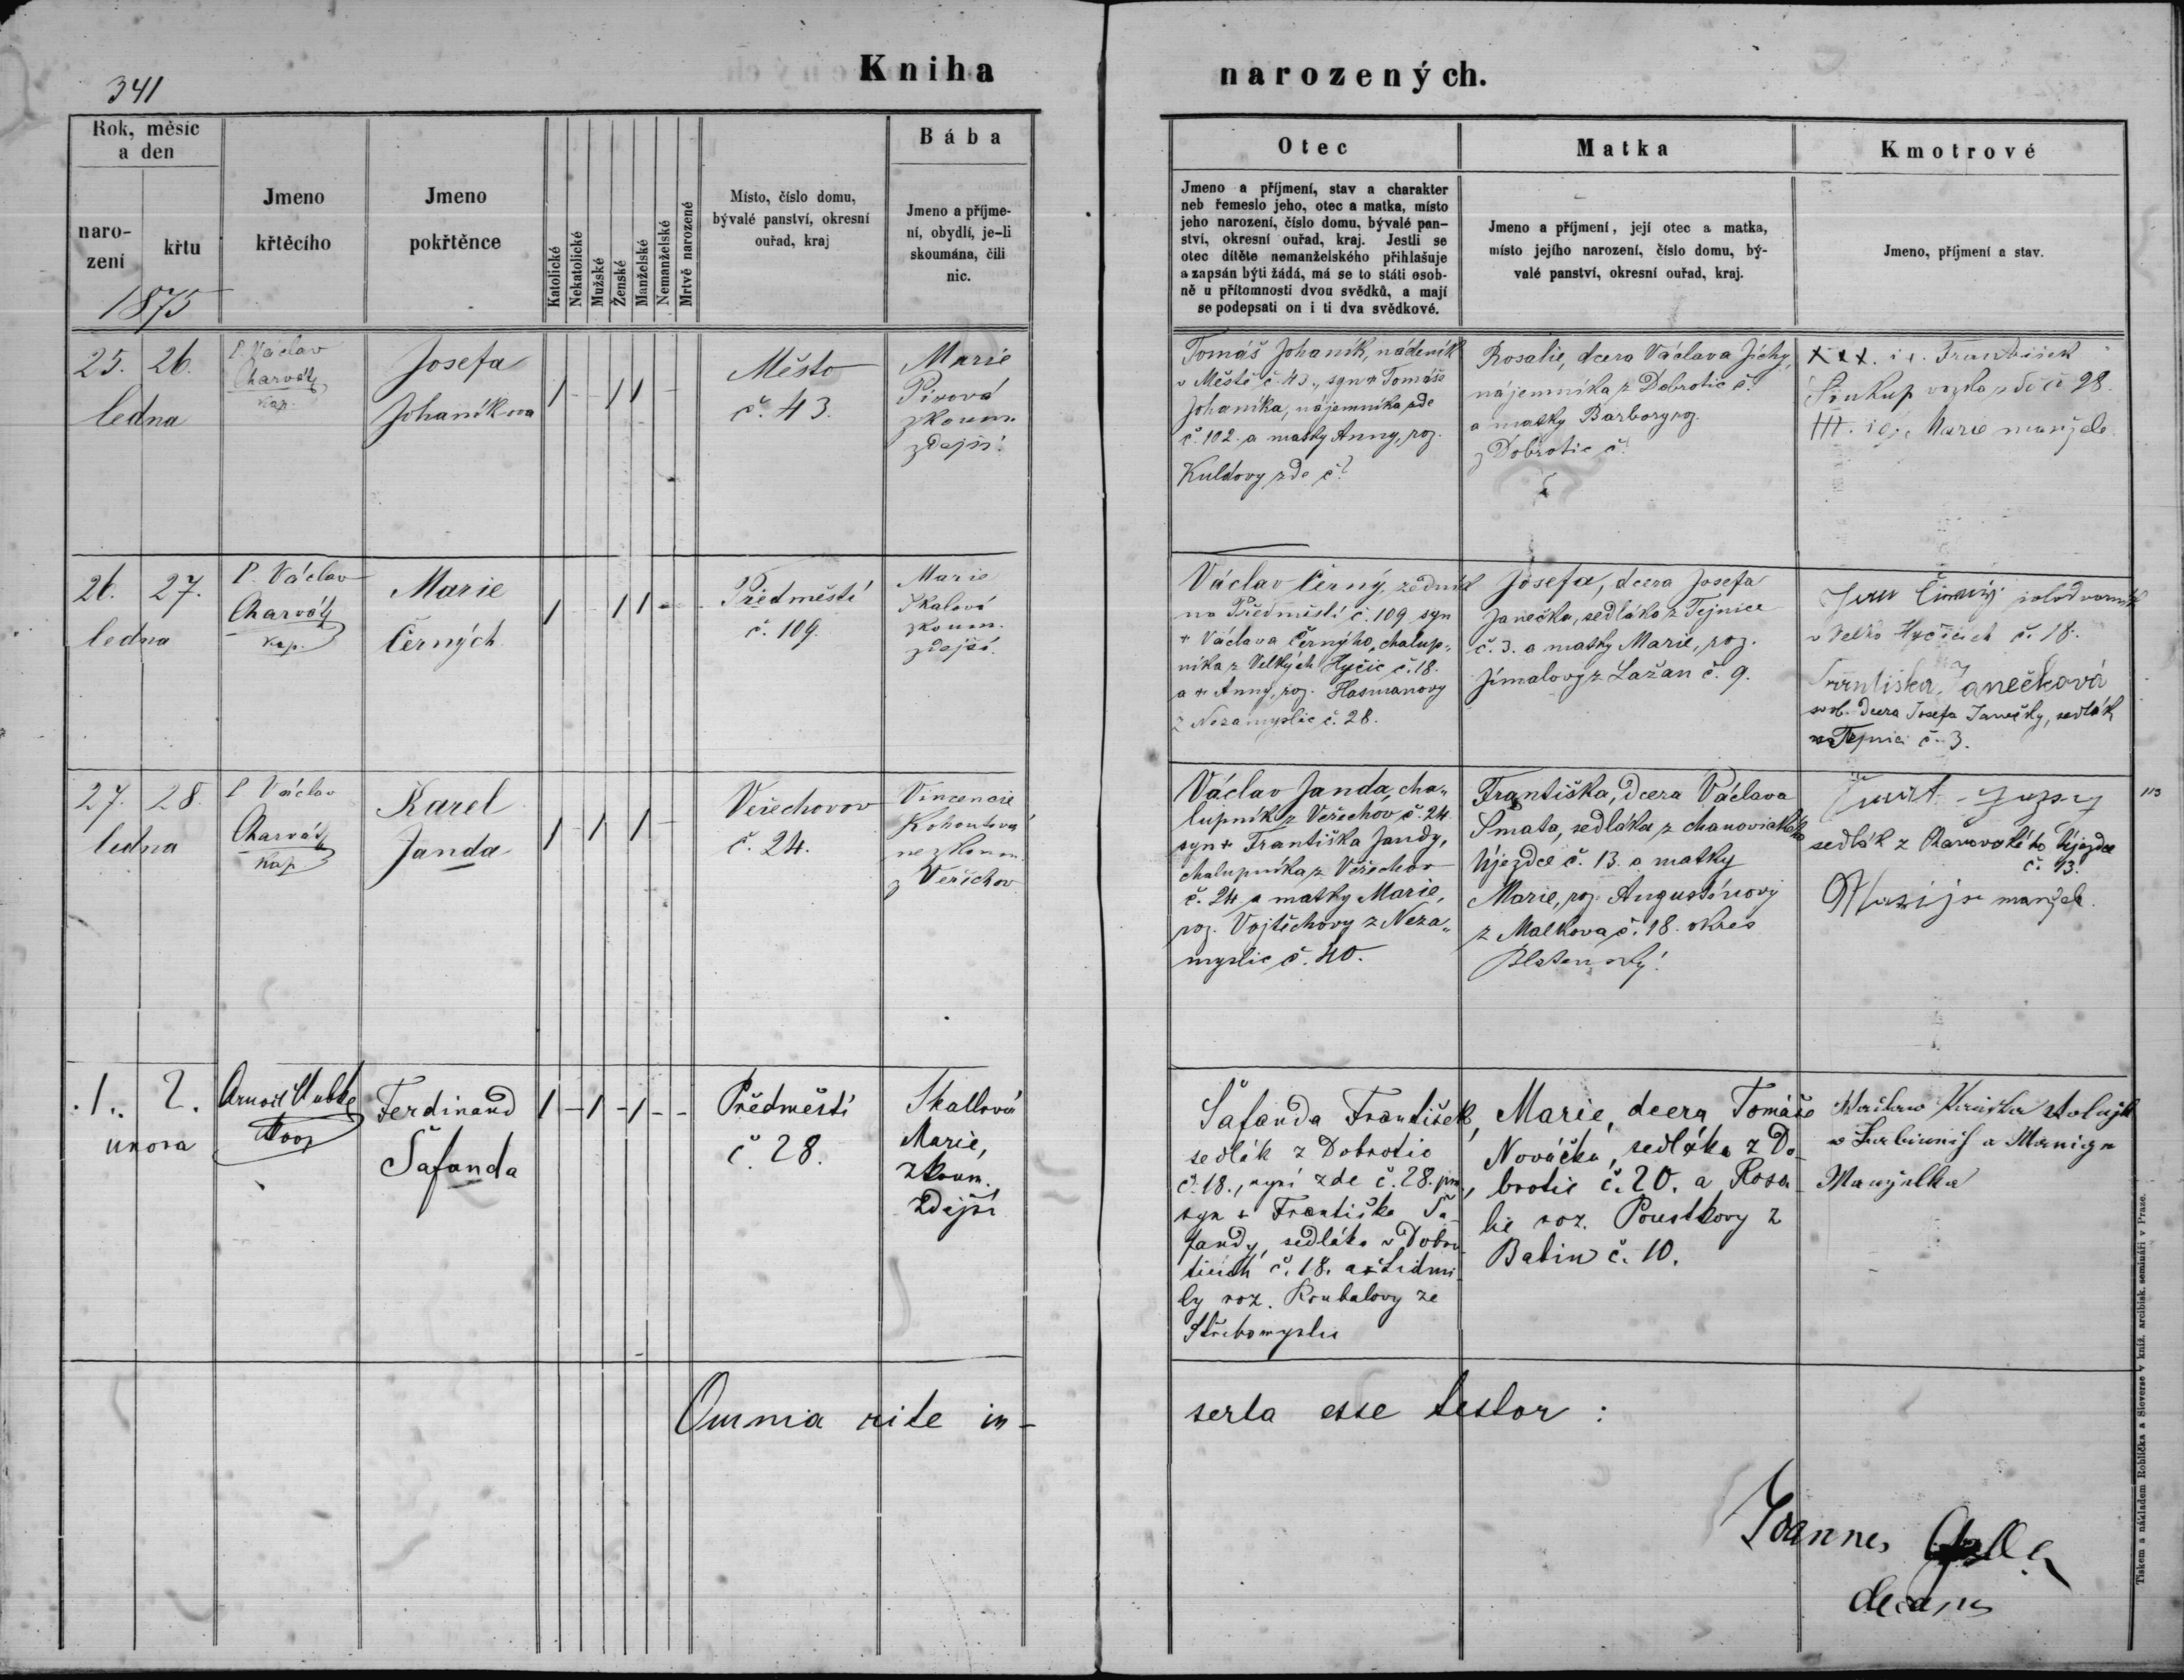 341
Kniha
narozených.
Rok, měsíc
a den
naro-
zení
křtu
1875
Jmeno
křtěcího
Jmeno
pokřtěnce
Katolické
Nekatolické
Mužské
Ženské
Manželské
Nemanželské
Mrtvě narozené
Místo, číslo domu,
bývalé panství, okresní
ouřad, kraj
Bába
Jmeno a příjme-
ní, obydlí, je-li
skoumána, čili
nic.
Otec
Jmeno a příjmení, stav a charakter
neb řemeslo jeho, otec a matka, místo
jeho narození, číslo domu, bývalé pan-
ství, okresní ouřad, kraj. Jestli se
otec dítěte nemanželského přihlašuje
a zapsán býti žádá, má se to státi osob-
ně u přítomnosti dvou svědků, a mají
se podepsati on i ti dva svědkové.
Matka
Jmeno a příjmení, její otec a matka,
místo jejího narození, číslo domu, bý-
valé panství, okresní ouřad, kraj.
Kmotrové
Jmeno, příjmení a stav.
25. 26.
ledna
P. Václav
Charvát
kap.
Josefa
Johaníkova
1 - - 1 1 -
Město
č. 43.
Marie
Pivová
zkoum.
zdejší
Tomáš Johaník, nádeník
v Městě č. 43., syn + Tomáše
Johaníka, nájemníka zde
č. 102. a matky Anny, roz.
Kuldovy zde č?
Rosalie, dcera Václava Jíchy,
nájemníka z Dobrotic č.
a matky Barbory roz.
z Dobrotic č.
XXX. i.e. František
č. 28.
III. Marie manžel.
26. 27.
ledna
P. Václav
Charvát
kap.
Marie
Černých
1 - - 1 1 - -
Předměstí
č. 109.
Marie
Skalová
zkoum.
zdejší.
Václav Černý, zedník
na Předměstí č. 109 syn
+ Václava Černýho, chalup-
níka z Velkých Hyčic č. 18.
a + Anny, roz. Hasmanovy
z Nezamyslic č. 28.
Josefa, dcera Josefa
Janečka, sedláka z Tejnice
č. 3. a matky Marie, roz.
Jímalovy z Lažan č. 9.
Jan Černý
č. 18.
Františka Janečková
svob. dcera Josefa Janečky, sedlák
z Tejnici č. 3.
27. 28.
ledna
P. Václav
Charvát
kap.
Karel
Janda
1 - 1 - 1 -
Veřechovov
č. 24.
Vincencie
Kohoutová
nezkoum.
z Veřechov
Václav Janda, cha-
lupník z Veřechov č. 24
syn + Františka Jandy,
chalupníka z Veřechov
č. 24 a matky Marie,
roz. Vojtěchovy z Neza-
myslic č. 40.
Františka, dcera Václava
Smata, sedláka z chanovického
Újezdce č. 13. a matky
Marie, roz. Augustinovy
z Malkova č. 18. okres
Blatenský.
sedlák z Chanovského Újezdce
č. 13.
Marije manžel.
113
.1.. 2.
února
Ferdinand
Šafanda
1 - 1 - 1 - -
Předměstí
č. 28.
Skallová
Marie,
zkoum.
zdejší
Šafanda František,
sedlák z Dobrotic
č. 18., nyní zde č. 28. pm,
syn + Františka Ša-
fandy, sedláka v Dobro-
ticích č. 18. a + Lidmi-
ly roz. Roubalovy ze
Střebomyslic
Marie, dcera Tomáše
Nováčka, sedláka z Do-
brotic č. 20. a Rosa-
lie roz. Poustkovy z
Babin č. 10.
Manželka
Omnia rite in-
serta esse testor:
Joannes
decanus
Tiskem a nákladem Rohlíčka a Sieverse v kníž. arcibisk. semináři v Praze.